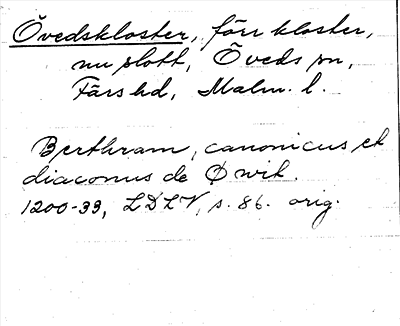 Övedskloster, förr kloster,
nu slott, Öveds sn,
Färs hd, Malm. l.
Berthram, canonicus et
diaconus de Øwit.
1200-33, LDLV, s. 86. orig.